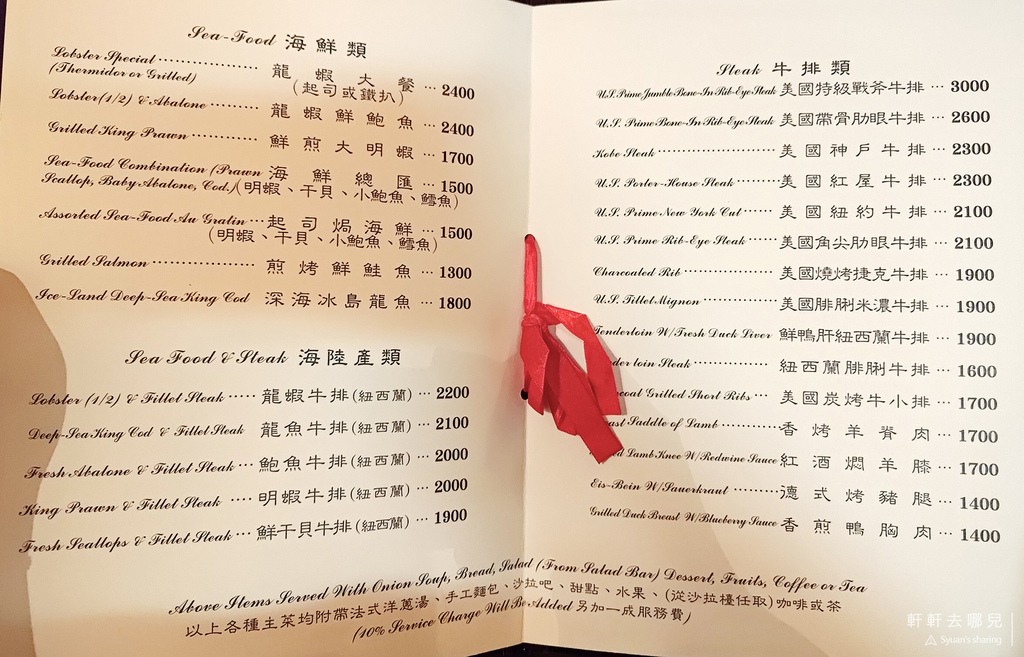 Sea-Food 海鮮類
Lobster Special 龍蝦大餐 2400
(Thermidor or Grilled) (起司或鐵扒)
Lobster(1/2) & Abalone 龍蝦鮮鮑魚 2400
Grilled King Prawn 鮮煎大明蝦 1700
Sea-Food Combination (Prawn 海鮮總匯 1500
Scallop, Baby Abalone, Cod,)(明蝦、干貝、小鮑魚、鱈魚)
Assorted Sea-Food Au Gratin 起司焗海鮮 1500
(明蝦、干貝、小鮑魚、鱈魚)
Grilled Salmon 煎烤鮮鮭魚 1300
Ice-Land Deep-Sea King Cod 深海冰島龍魚 1800
Sea Food & Steak 海陸產類
Lobster (1/2) & Fillet Steak 龍蝦牛排(紐西蘭) 2200
Deep-Sea King Cod & Fillet Steak 龍魚牛排(紐西蘭) 2100
Fresh Abalone & Fillet Steak 鮑魚牛排(紐西蘭) 2000
King Prawn & Fillet Steak 明蝦牛排(紐西蘭) 2000
Fresh Scallops & Fillet Steak 鮮干貝牛排(紐西蘭) 1900
Steak 牛排類
U.S. Prime Jumble Bone-In Rib-Eye Steak 美國特級戰斧牛排 3000
U.S. Prime Bone-In Rib-Eye Steak 美國帶骨肋眼牛排 2600
Kobe Steak 美國神戶牛排 2300
U.S. Porter-House Steak 美國紅屋牛排 2300
U.S. Prime New York Cut 美國紐約牛排 2100
U.S. Prime Rib-Eye Steak 美國角尖肋眼牛排 2100
Charcoaled Rib 美國燒烤捷克牛排 1900
U.S. Fillet Mignon 美國腓脷米濃牛排 1900
Tenderloin W/Fresh Duck Liver 鮮鴨肝紐西蘭牛排 1900
loin Steak 紐西蘭腓脷牛排 1600
Grilled Short Ribs 美國炭烤牛小排 1700
Saddle of Lamb 香烤羊脊肉 1700
Lamb Knee W/Redwine Sauce 紅酒燜羊膝 1700
Eis-Bein W/Sauerkraut 德式烤豬腿 1400
Grilled Duck Breast W/Blueberry Sauce 香煎鴨胸肉 1400
Above Items Served With Onion Soup, Bread, Salad (From Salad Bar) Dessert, Fruits, Coffee or Tea
以上各種主菜均附帶法式洋蔥湯、手工麵包、沙拉吧、甜點、水果、(從沙拉檯任取)咖啡或茶
(10% Service Charge Will Be Added 另加一成服務費)
軒軒去哪兒
Syuan's sharing